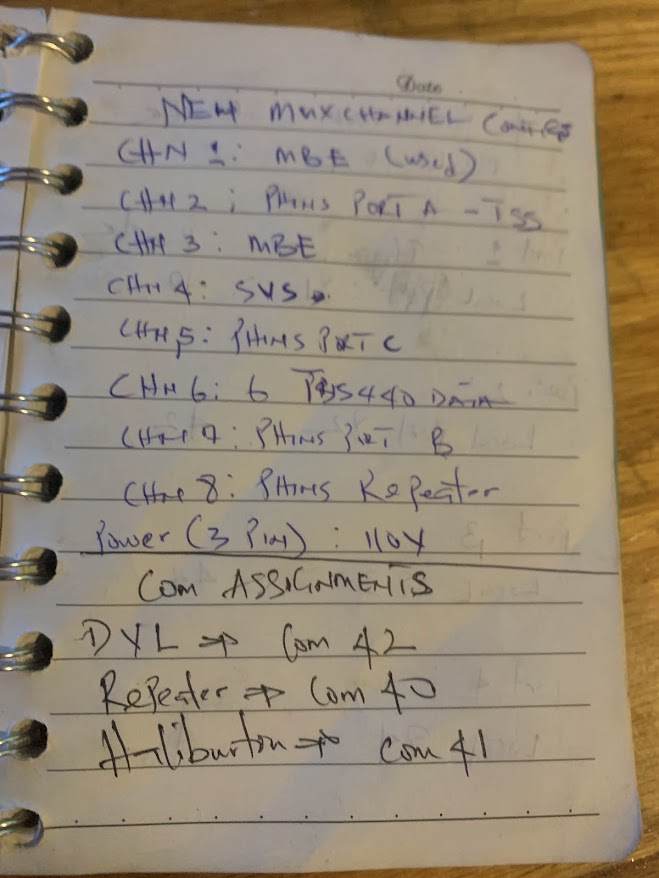 Date
NEW MUX CHANNEL Configs
CHN 1: MBE (used)
CHN 2: PHINS PORT A - TSS
CHN 3: MBE
CHN 4: SVS
CHN 5: PHINS PORT C
CHN 6: 6 TSS440 DATA
CHN 7: PHINS PORT B
CHN 8: PHINS Repeater
Power (3 PIN) : 110V
COM ASSIGNMENTS
DVL ⇒ Com 42
Repeater ⇒ Com 40
Haliburton ⇒ Com 41